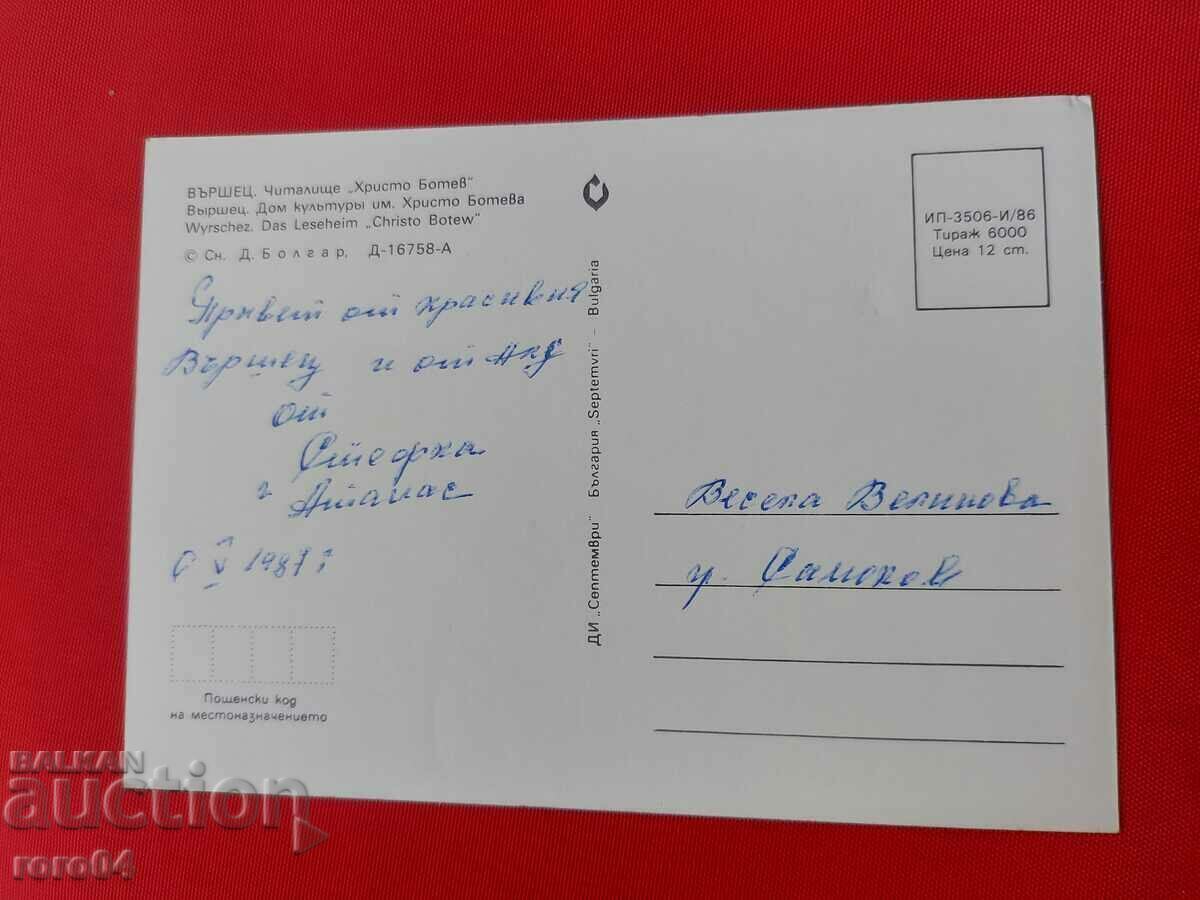 ВЪРШЕЦ. Читалище „Христо Ботев"
Выршец. Дом культуры им. Христо Ботева
Wyrschez. Das Leseheim „Christo Botew"
© Сн. Д. Болгар, Д-16758-А
Привет от красивия
Вършец и от
от
Стефка
и Атанас
V 1987 г
Пощенски код
на местоназначението
ДИ „Септември" България „Septemvri" – Bulgaria
ИП-3506-И/86
Тираж 6000
Цена 12 ст.
Весела Велинова
гр. Самоков
BALKAN
auction
roro04